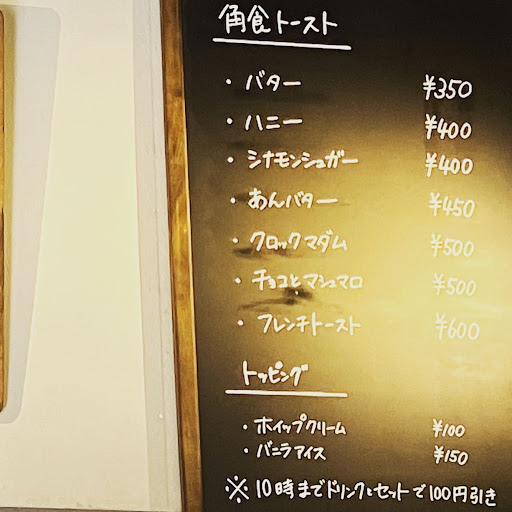 角食トースト
・バター ¥350
・ハニー ¥400
・シナモンシュガー ¥400
・あんバター ¥450
・クロックマダム ¥500
・チョコとマシュマロ ¥500
・フレンチトースト ¥600
トッピング
・ホイップクリーム ¥100
・バニラアイス ¥150
※10時までドリンクとセットで100円引き